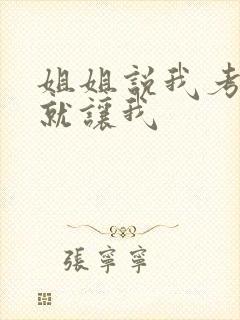 姐姐説我考
就讓我
張寧寧